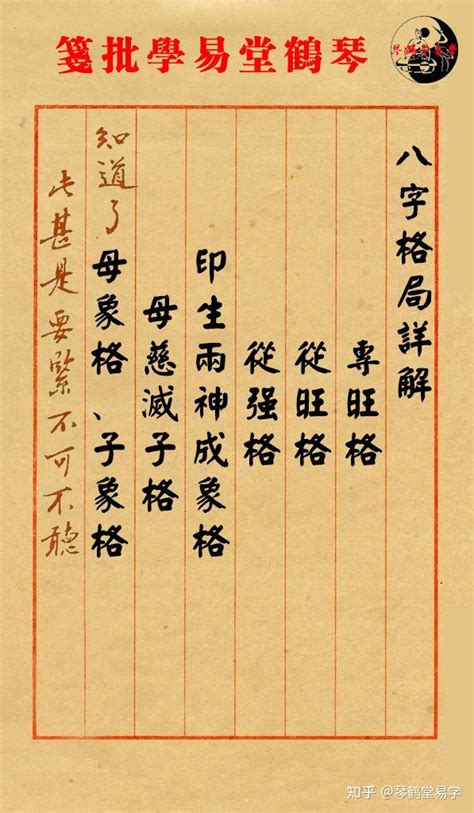 琴鶴堂易學批箋
八字格局詳解
專旺格
從旺格
從强格
印生兩神成象格
母慈滅子格
母象格、子象格
知道了
此甚是要緊不可不聽
知乎 @琴鹤堂易学